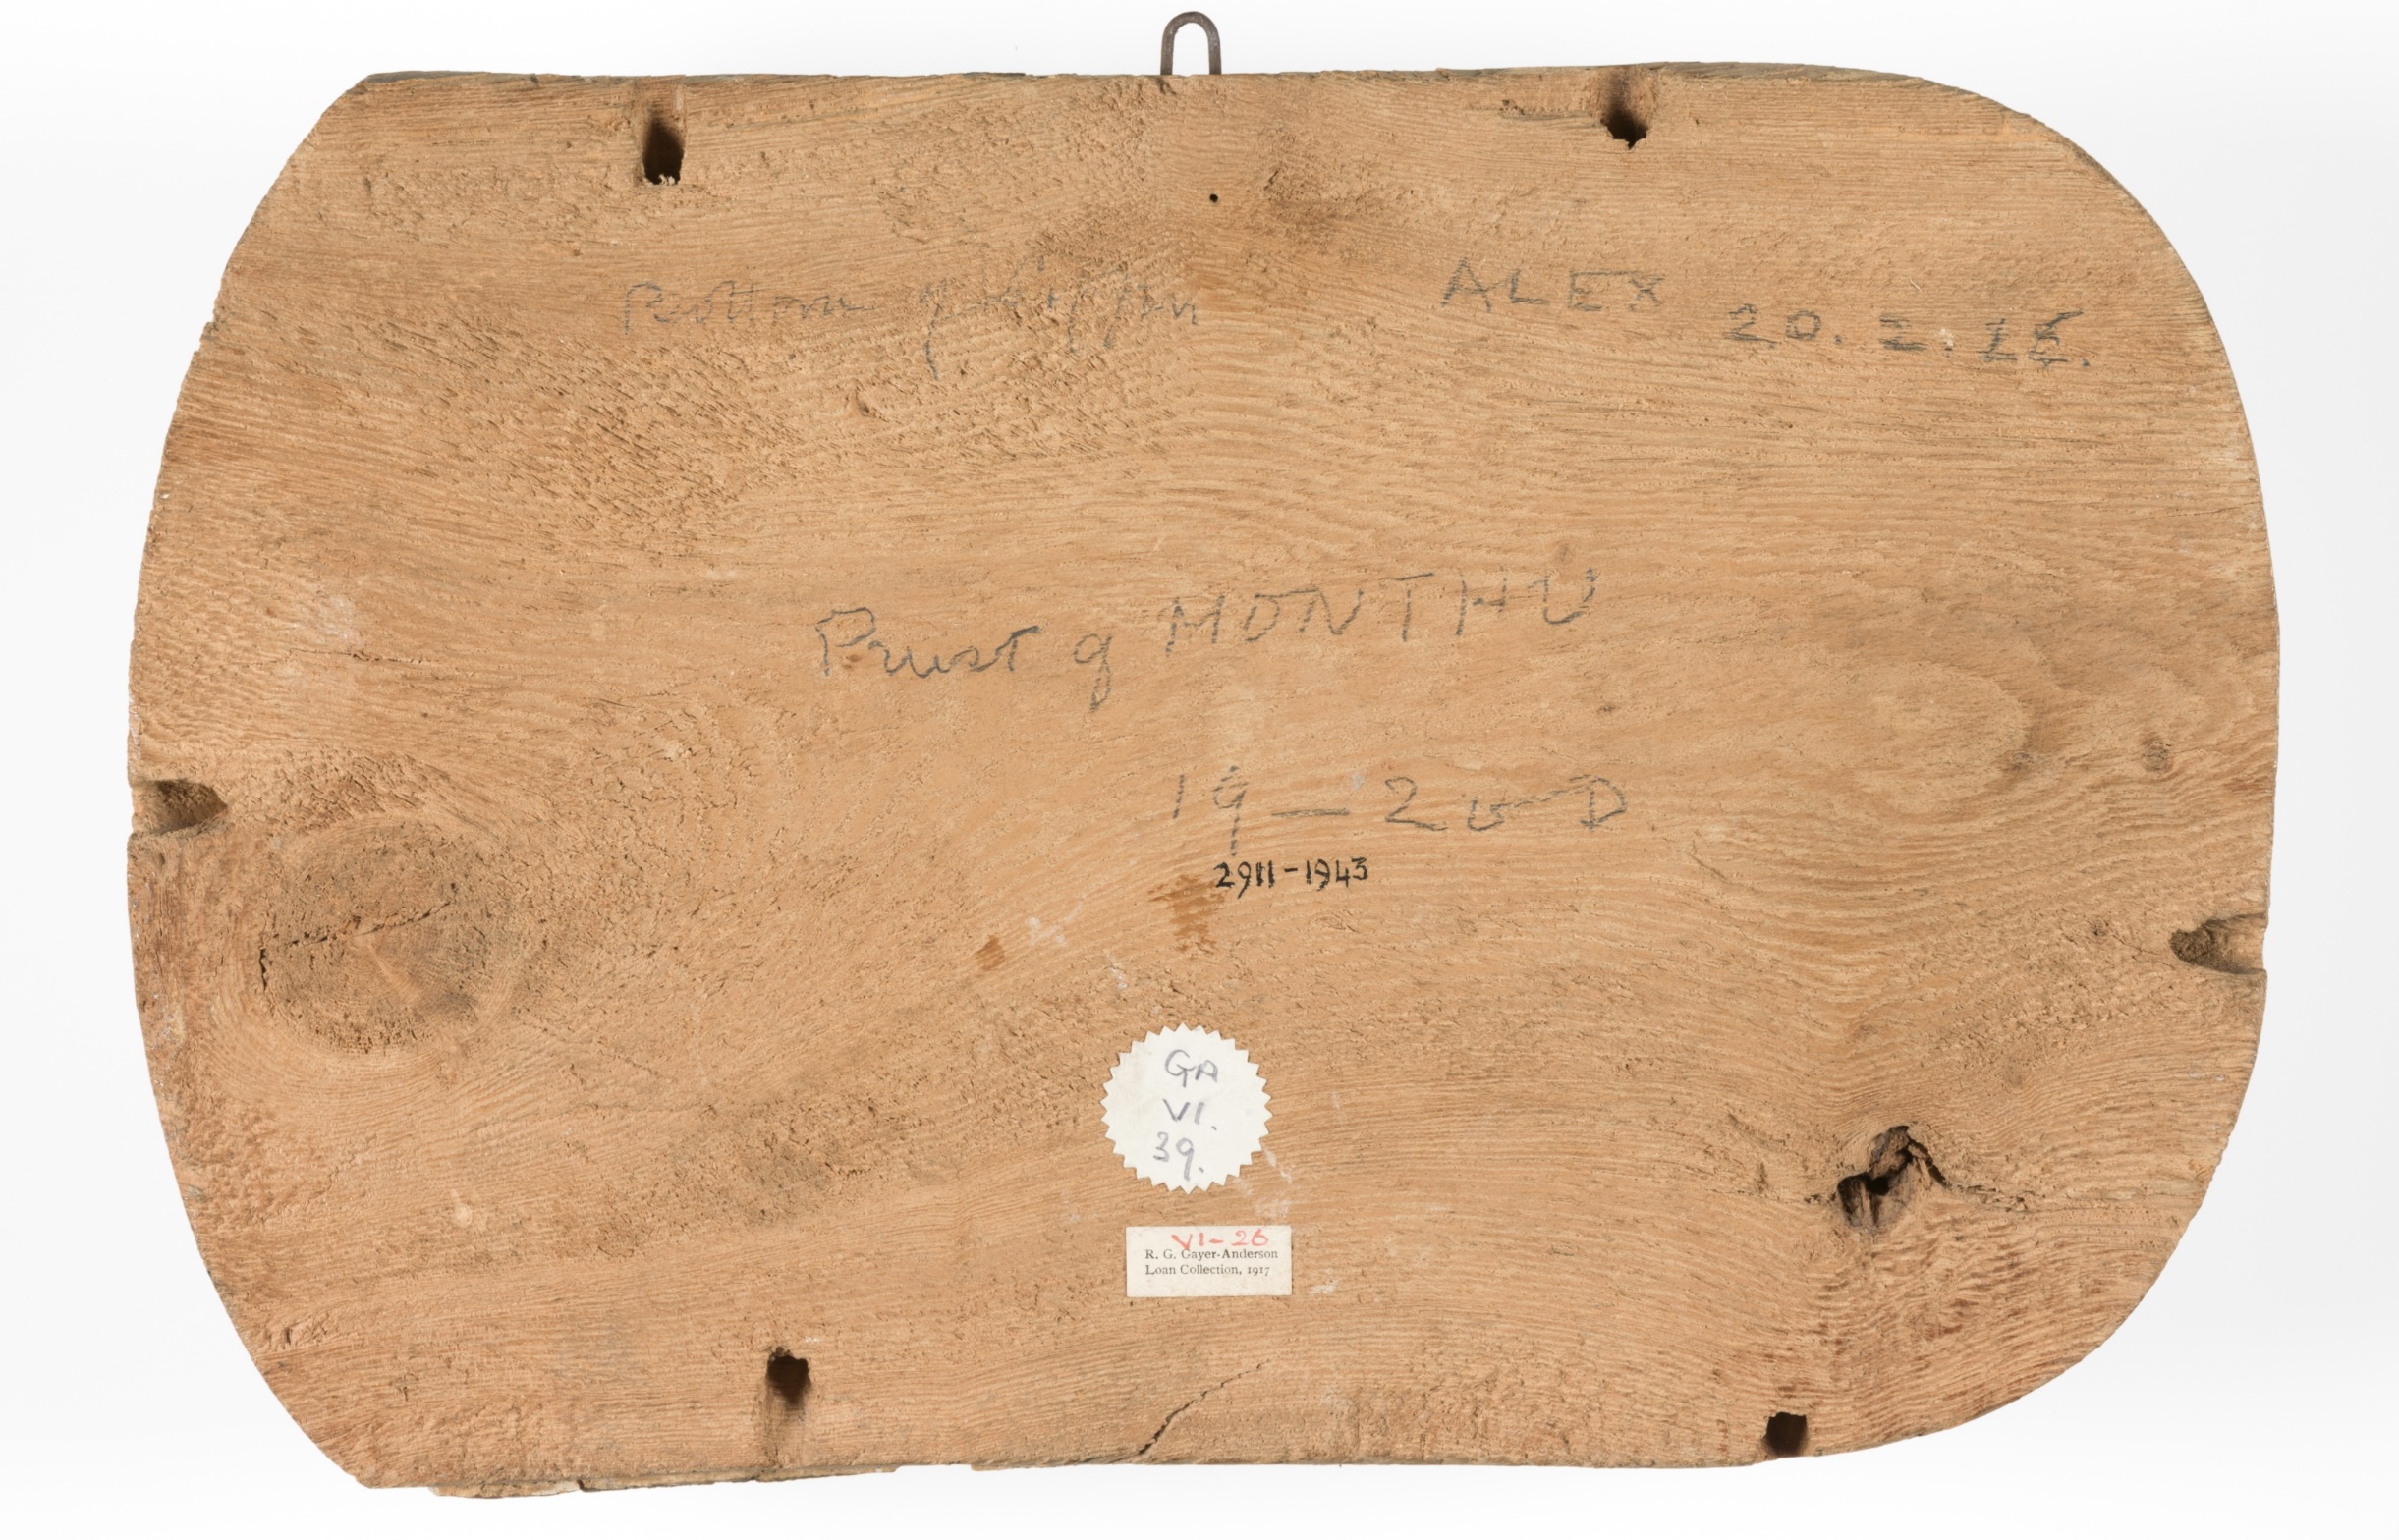 Bottom of coffin
ALEX 20.2.16.
Priest of MONTHU
19 — 20 D
2911-1943
GA
VI.
39.
VI-26
R. G. Gayer-Anderson
Loan Collection, 1917